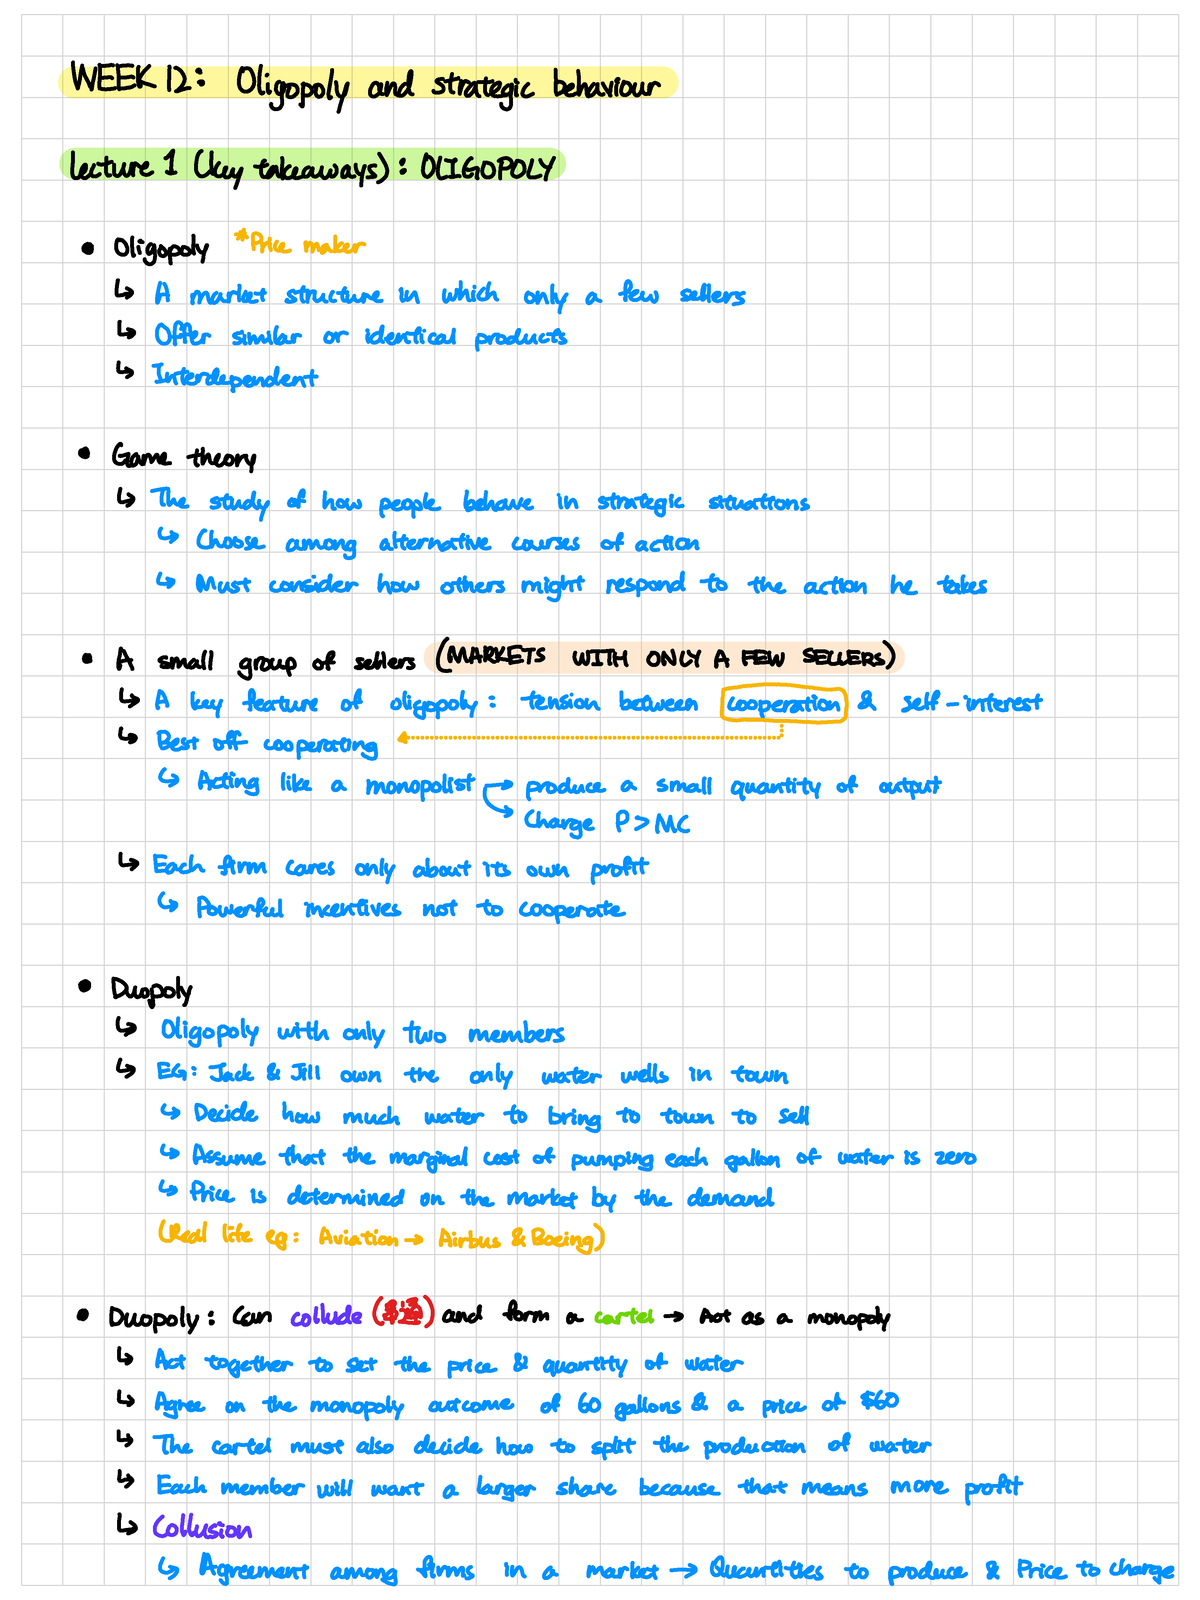 WEEK 12: Oligopoly and strategic behaviour
Lecture 1 (key takeaways): OLIGOPOLY
• Oligopoly *Price maker
↳ A market structure in which only a few sellers
↳ Offer similar or identical products
↳ Interdependent
• Game theory
↳ The study of how people behave in strategic situations
↳ Choose among alternative courses of action
↳ Must consider how others might respond to the action he takes
• A small group of sellers (MARKETS WITH ONLY A FEW SELLERS)
↳ A key feature of oligopoly: tension between cooperation & self-interest
↳ Best off cooperating
↳ Acting like a monopolist → produce a small quantity of output
→ Charge P > MC
↳ Each firm cares only about its own profit
↳ Powerful incentives not to cooperate
• Duopoly
↳ Oligopoly with only two members
↳ EG: Jack & Jill own the only water wells in town
↳ Decide how much water to bring to town to sell
↳ Assume that the marginal cost of pumping each gallon of water is zero
↳ Price is determined on the market by the demand
(Real life eg: Aviation → Airbus & Boeing)
• Duopoly: Can collude and form a cartel → Act as a monopoly
↳ Act together to set the price & quantity of water
↳ Agree on the monopoly outcome of 60 gallons & a price of $60
↳ The cartel must also decide how to split the production of water
↳ Each member will want a larger share because that means more profit
↳ Collusion
↳ Agreement among firms in a market → Quantities to produce & Price to charge